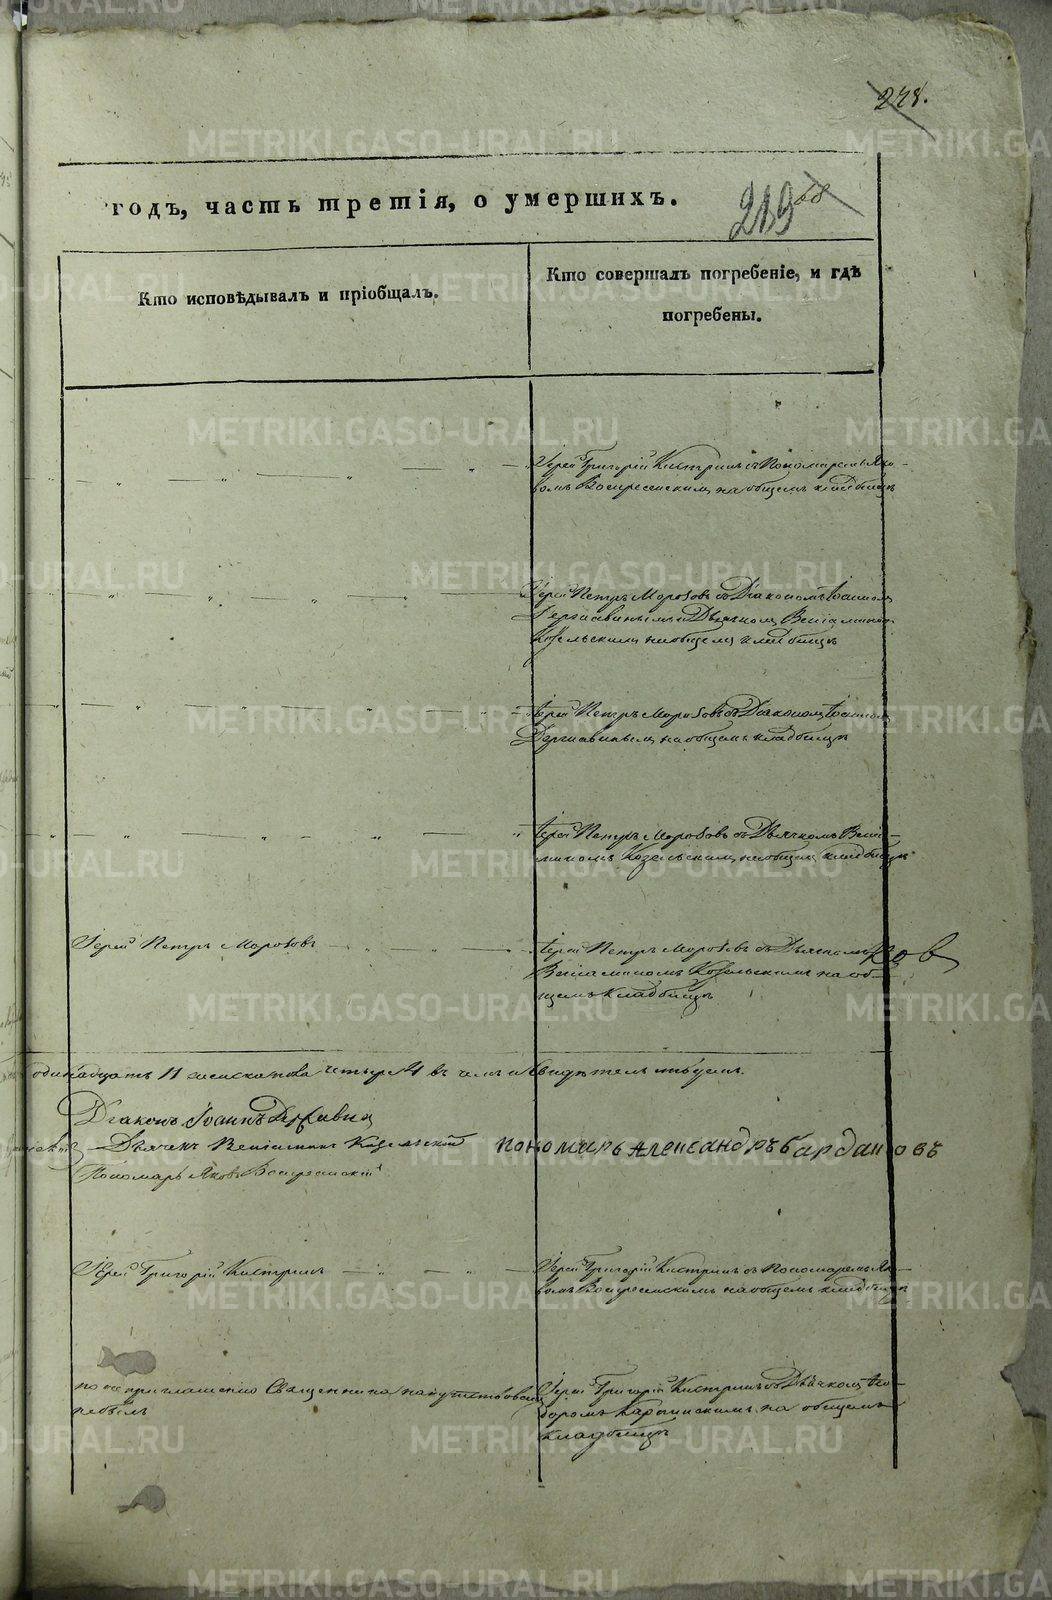 278.
годъ, часть третія, о умершихъ.
219
68
Кто исповѣдывалъ и пріобщалъ.
Кто совершалъ погребеніе, и гдѣ
погребены.
Іерей Григорій Кистринъ съ Пономаремъ Яко-
вомъ Воскресенскимъ на общемъ кладбищѣ
Іерей Петръ Морозовъ съ Діакономъ Іоанномъ
Державинымъ и Дьячкомъ Веніаминомъ
Козельскимъ на общемъ кладбищѣ
Іерей Петръ Морозовъ съ Діакономъ Іоанномъ
Державинымъ на общемъ кладбищѣ
Іерей Петръ Морозовъ съ Дьячкомъ Веніа-
миномъ Козельскимъ на общемъ кладбищѣ
Іерей Петръ Морозовъ
Іерей Петръ Морозовъ съ Дьячкомъ
Веніаминомъ Козельскимъ на об-
щемъ кладбищѣ
ровъ
одинадцать 11 женска пола четыре 4 въ чемъ и свидѣтельствуемъ.
Діаконъ Іоаннъ Державинъ
Дьячекъ Веніаминъ Козельскій
Пономарь Александръ Кардашовъ
Пономарь Яковъ Воскресенскій
Іерей Григорій Кистринъ
Іерей Григорій Кистринъ съ Пономаремъ Яко-
вомъ Воскресенскимъ на общемъ кладбищѣ
по не приглашенію Священника напутствованъ
не былъ
Іерей Григорій Кистринъ съ Дьячкомъ Ѳео-
доромъ Карпинскимъ на общемъ
кладбищѣ
METRIKI.GASO-URAL.RU